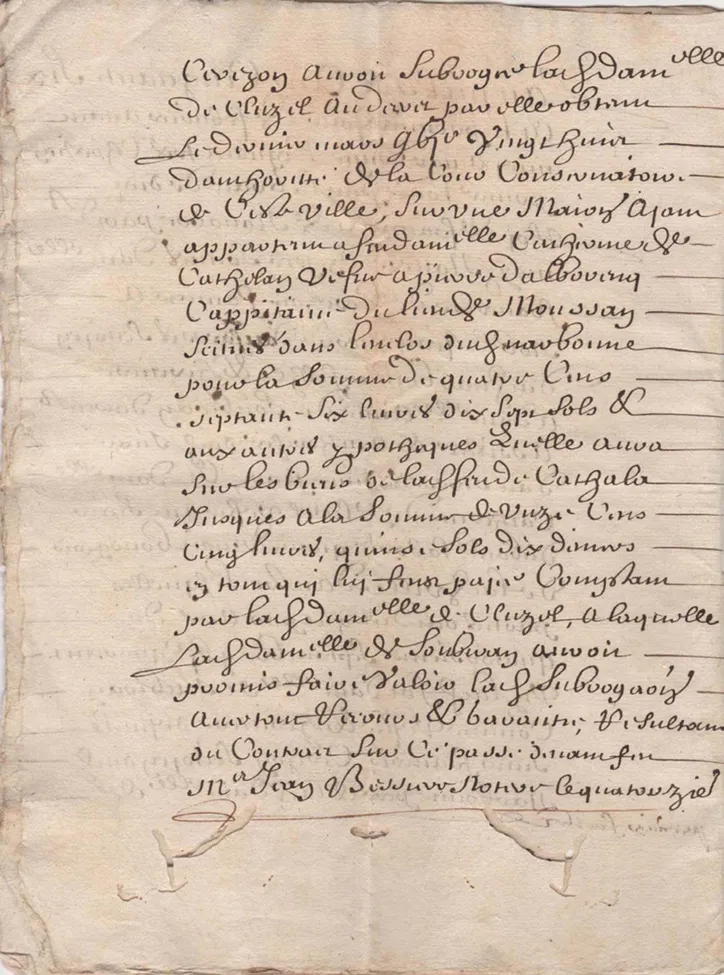 Cerezon auroit subrogue lad damelle
de Cluzel au decret par elle obtenu
Le dernier mars vingt huict
dauthoritte de la Cour Conservatoire
de Ceste ville, sur une Maison ayant
appartenu a feu damelle Catherine de
Cathelan vefue a pierre dalbourcq
Cappitaine du lieu de Moussan
scitué dans lenclos dud narbonne
pour la somme de quatre Cens
septante six liures dix sept sols &
aux autres ypotheques quelle aura
sur les biens de lad feu de Cathala
Jusques a la somme de unze Cens
Cinq liures, quinse sols dix deniers
en tout qui luy feust payee Comptant
par lad damelle de Cluzel, a laquelle
Lad damelle de auroit
promis faire valoir lad subrogaon
auec tout recours & garantie, resultant
du Contract sur Ce passe deuant feu
Mer Jean Bessiere Notere le quatorzie